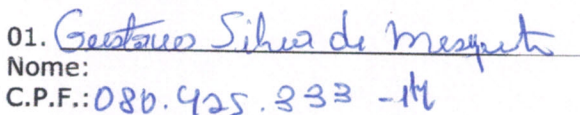 01. Gustavo Silva de Mesquita
Nome:
C.P.F.: 080.425.333-14